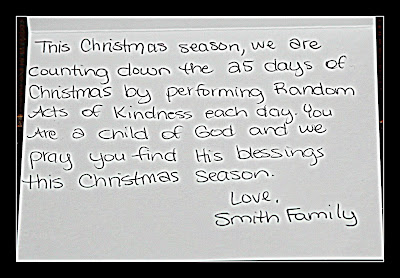 This Christmas season, we are
counting down the 25 days of
Christmas by performing Random
Acts of Kindness each day. You
Are a child of God and we
pray you find His blessings
this Christmas season.
Love,
Smith Family